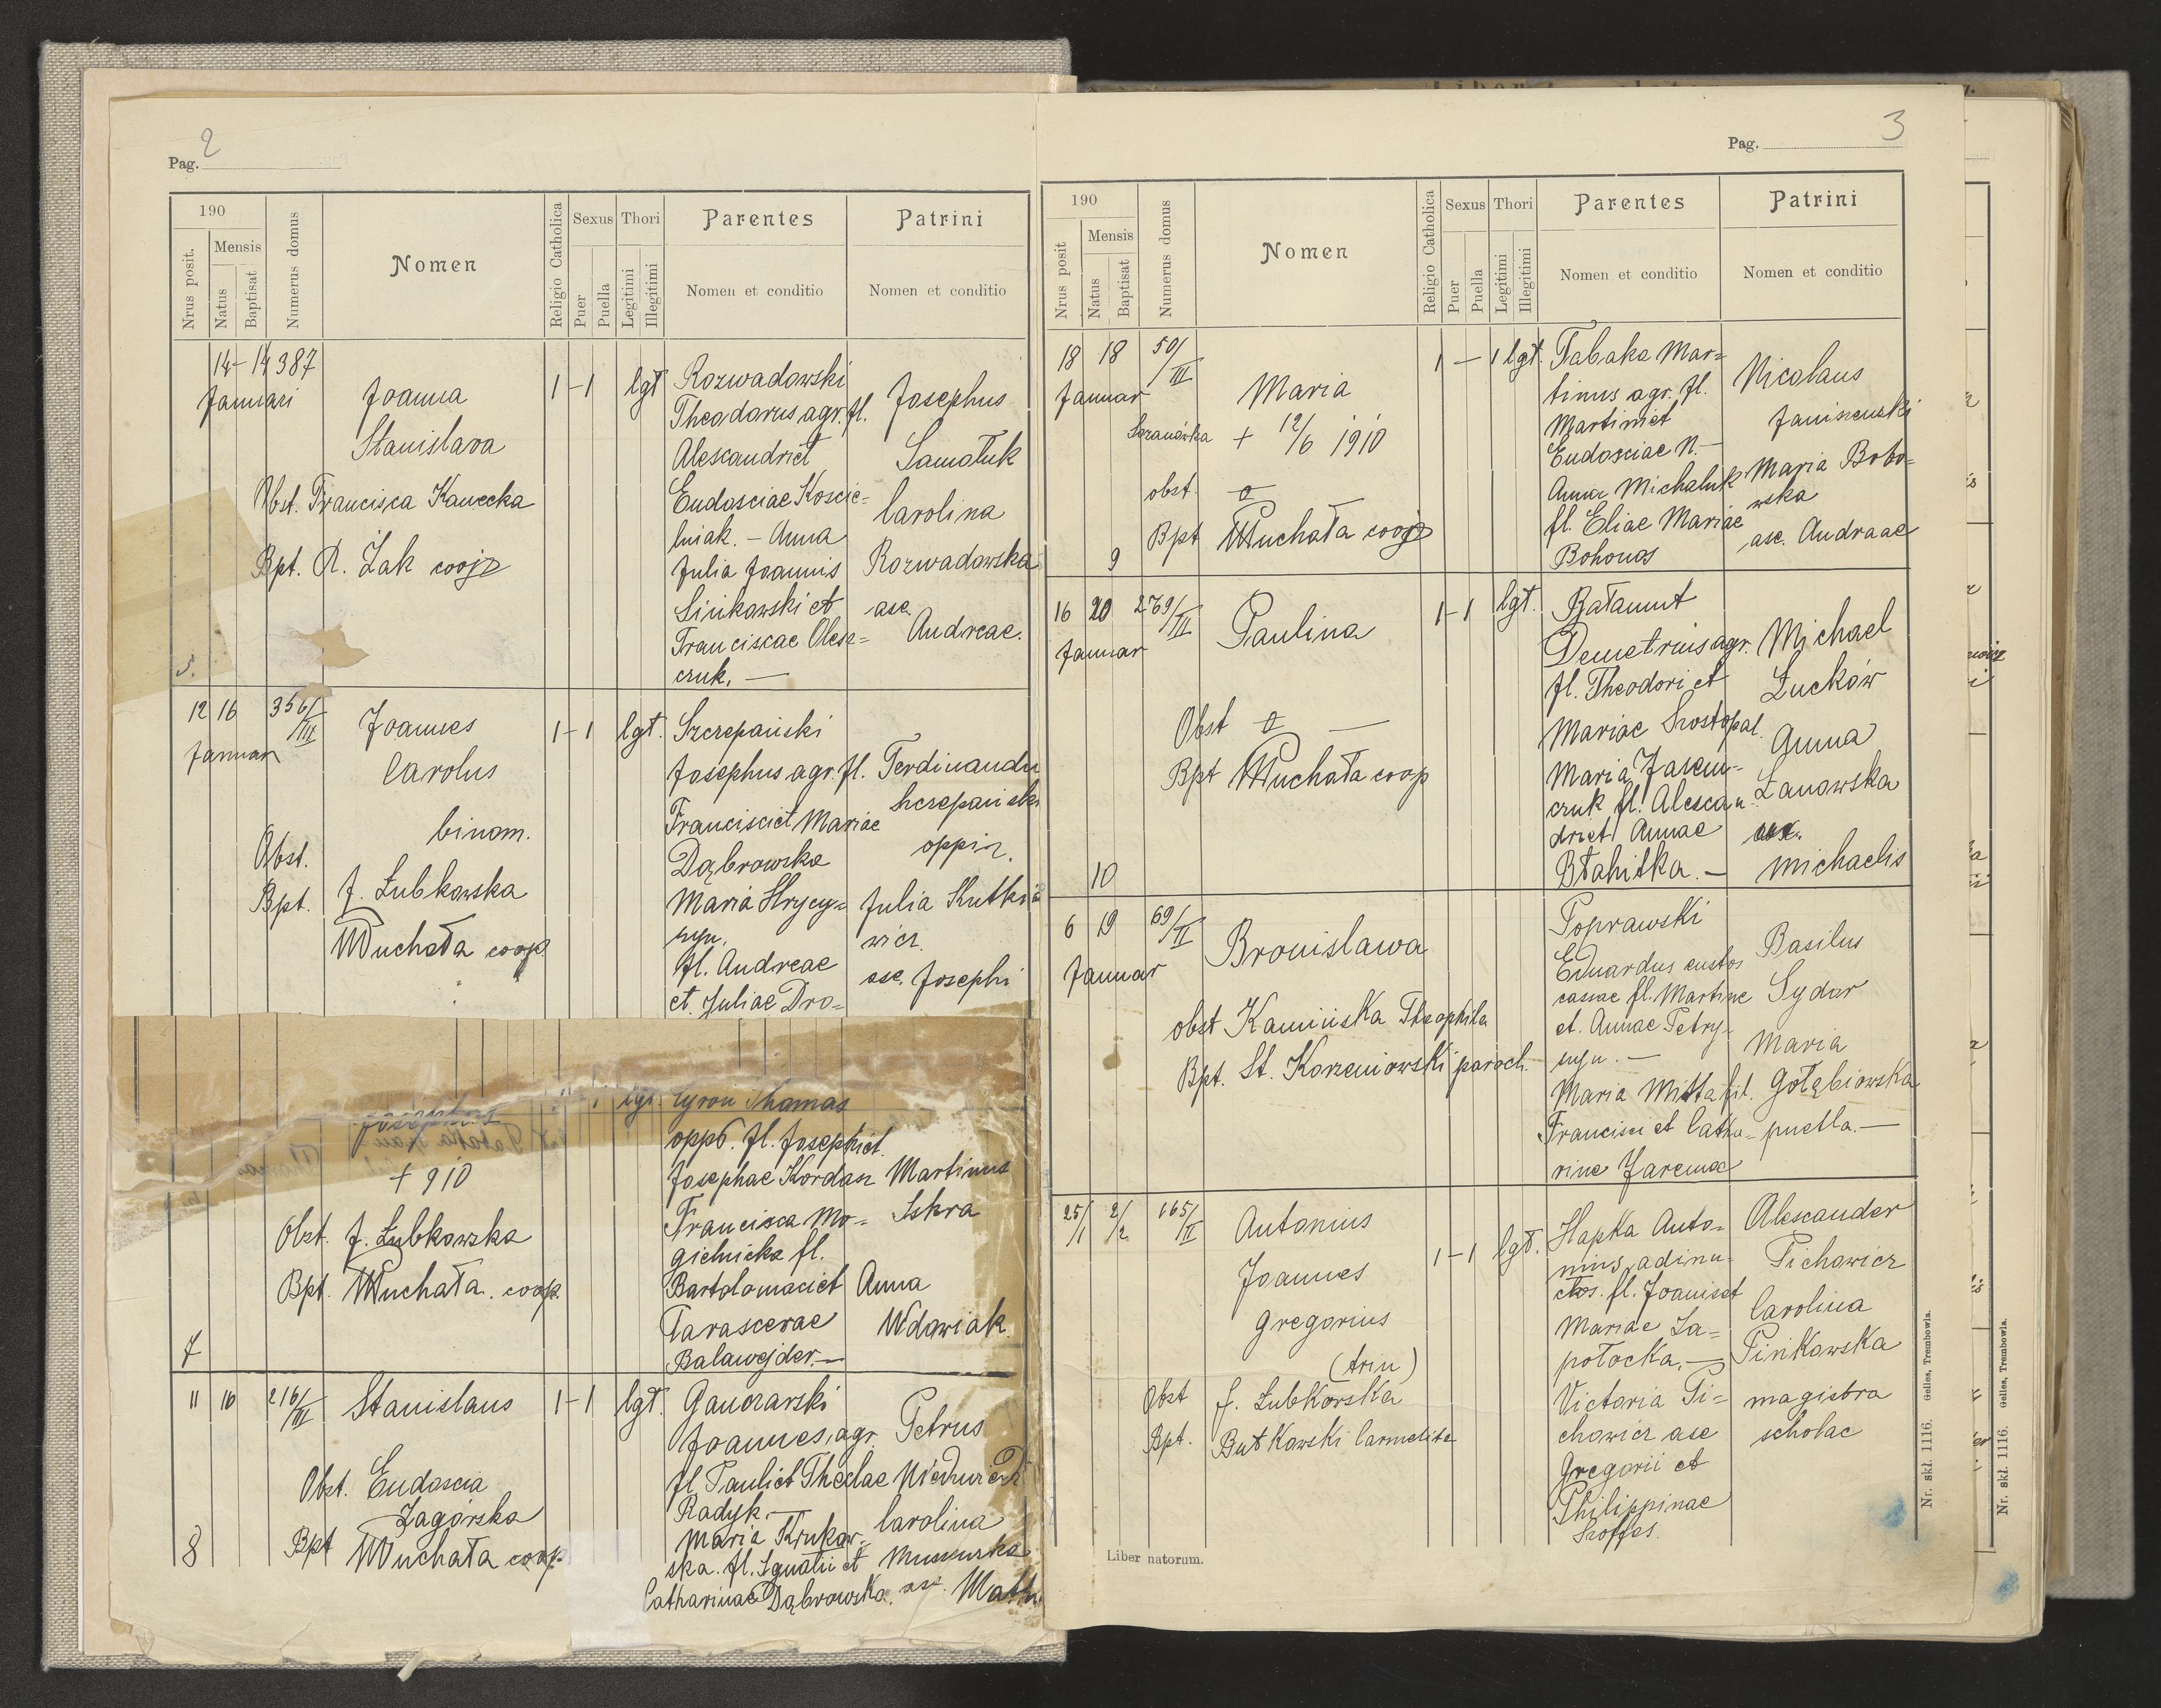 Pag. 2
190
Nrus posit.
Mensis
Natus
Baptisat
Numerus domus
Nomen
Religio Catholica
Sexus
Puer
Puella
Thori
Legitimi
Illegitimi
Parentes
Nomen et conditio
Patrini
Nomen et conditio
14 - 14 387
Januari
Joanna
Stanislava
Obst. Francisca Kanecka
Bpt. R. Żak coop
5.
1 - 1 lgt
Rozwadowski
Theodorus agr. fl.
Alexandri et
Eudoxiae Koscie=
lniak. - Anna
Julia Joannis
Sinkowski et
Franciscae Olesz=
czuk. —
Josephus
Samałuk
Carolina
Rozwadowska
ux.
Andreae.
12 16 356/III
Januar
Joannes
Carolus
binom.
Obst.
J. Łubkowska
Bpt.
Muchała coop
1 - 1 lgt.
Szczepański
Josephus agr. fl.
Francisci et Mariae
Dąbrowska
Maria Hrycy=
szyn.
fl. Andreae
et Juliae Dro=
Ferdinandu
Szczepański
oppid.
Julia Kutkie
wicz.
ux. Josephi
Josephus
+ 910
Obst. J. Łubkowska
Bpt. Muchała. coop.
7
lgt. Cyron Thomas
oppd. fl. Josephi et
Josephae Kordasz
Francisca Mo=
gielnicka fl.
Bartolomaei et
Parascevae
Balawejder. —
Martinus
Iskra
Anna
Wdowiak.
11 16 216/III
Stanislaus
Obst. Eudoxia
Zagórska
Bpt Muchała coop.
8
1 - 1 lgt.
Ganczarski
Joannes, agr.
fl Pauli et Theclae
Radyk. —
Maria Krukow=
ska. fl. Ignatii et
Catharinae Dąbrowska.
Petrus
Niedzwiedz
Carolina
ux. Math
Pag. 3
190
Nrus posit
Mensis
Natus
Baptisat
Numerus domus
Nomen
Religio Catholica
Sexus
Puer
Puella
Thori
Legitimi
Illegitimi
Parentes
Nomen et conditio
Patrini
Nomen et conditio
18 18 50/III
Januar
Maria
+ 12/6 1910
obst.
Bpt Muchała coop
9
1 - 1 lgt.
Tabaka Mar=
tinus agr. fl.
Martini et
Eudoxiae N. —
Anna Michaluk
fl. Eliae Mariae
Bohonos
Nicolaus
Janiszewski
Maria Bobo=
wska
ux. Andraae
16 20 269/III
Januar
Paulina
Obst —
Bpt Muchała coop
10
1 - 1 lgt.
Bałamut
Demetrius agr.
fl. Theodori et
Mariae Szostopal.
Maria Jasem=
czuk fl. Alexan=
dri et Annae
Błahitka. —
Michael
Łucków
Anna
Łanowska
ux.
Michaelis
6 19 69/II
Januar
Bronislawa
obst Kamińska Theophila
Bpt. St. Korzeniowski paroch.
Poprawski
Eduardus custos
cassae fl. Martine
et Annae Petry=
szyn. —
Maria Mitta fil.
Francisci et Catha=
rine Jarema
Basilus
Sydor
Maria
Gołąbiowska
puella. —
25/1 2/2 165/II
Antonius
Joannes
Gregorius
(trin)
Obst J. Łubkowska
Bpt. Butkowski Carmelita
1 - 1 lgt.
Hapka Anto=
nius, adinu=
ctos. fl. Joannis et
Mariae Za=
potocka. —
Victoria Ti=
chowicz ux
Gregorii et
Philippinae
Szoffes.
Alexander
Tichowicz
Carolina
Pinkowska
magistra
scholae
Liber natorum.
Nr. skł. 1116. Gelles, Trembowla.
Nr. skł. 1116. Gelles, Trembowla.